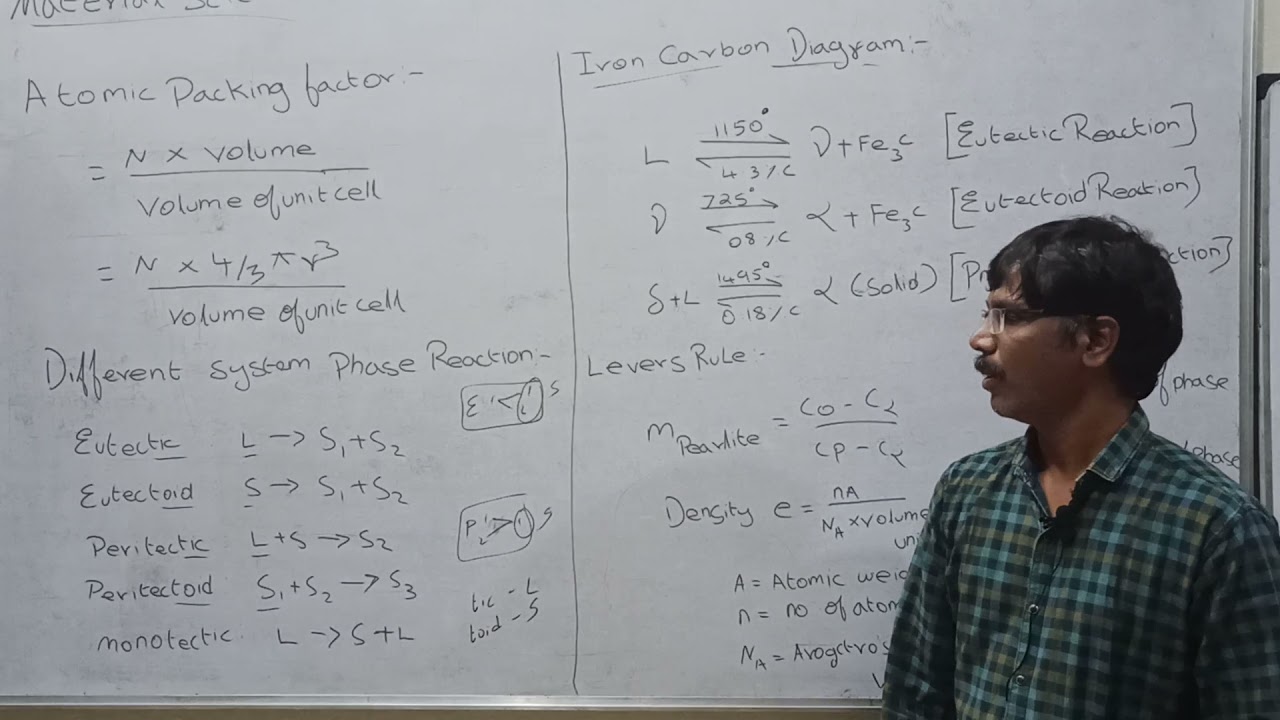 Material
Atomic Packing factor:-
= N × volume
volume of unit cell
= N × 4/3 π r³
volume of unit cell
Different system Phase Reaction:-
Eutectic L → S₁+S₂
Eutectoid S → S₁+S₂
Peritectic L+S → S₂
Peritectoid S₁+S₂ → S₃
monotectic L → S+L
E < 1 S
P > 1 S
tic - L
toid - S
Iron Carbon Diagram:-
L 1150° 4 3%C γ+Fe₃C [Eutectic Reaction]
γ 725° 08%C α + Fe₃C [Eutectoid Reaction]
δ+L 1495° 0 18%C α (solid) [P ction]
Levers Rule:-
of phase
m Pearlite = Co - Cα
Cp - Cα
phase
Density e = nA
N_A × volume
A = Atomic
n = no of atom
N_A = Avogctro's